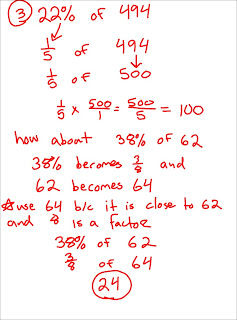 ③ 22% of 494
1/5 of 494
1/5 of 500
1/5 x 500/1 = 500/5 = 100
how about 38% of 62
38% becomes 3/8 and
62 becomes 64
☆use 64 b/c it is close to 62
and 8 is a factor
38% of 62
3/8 of 64
24